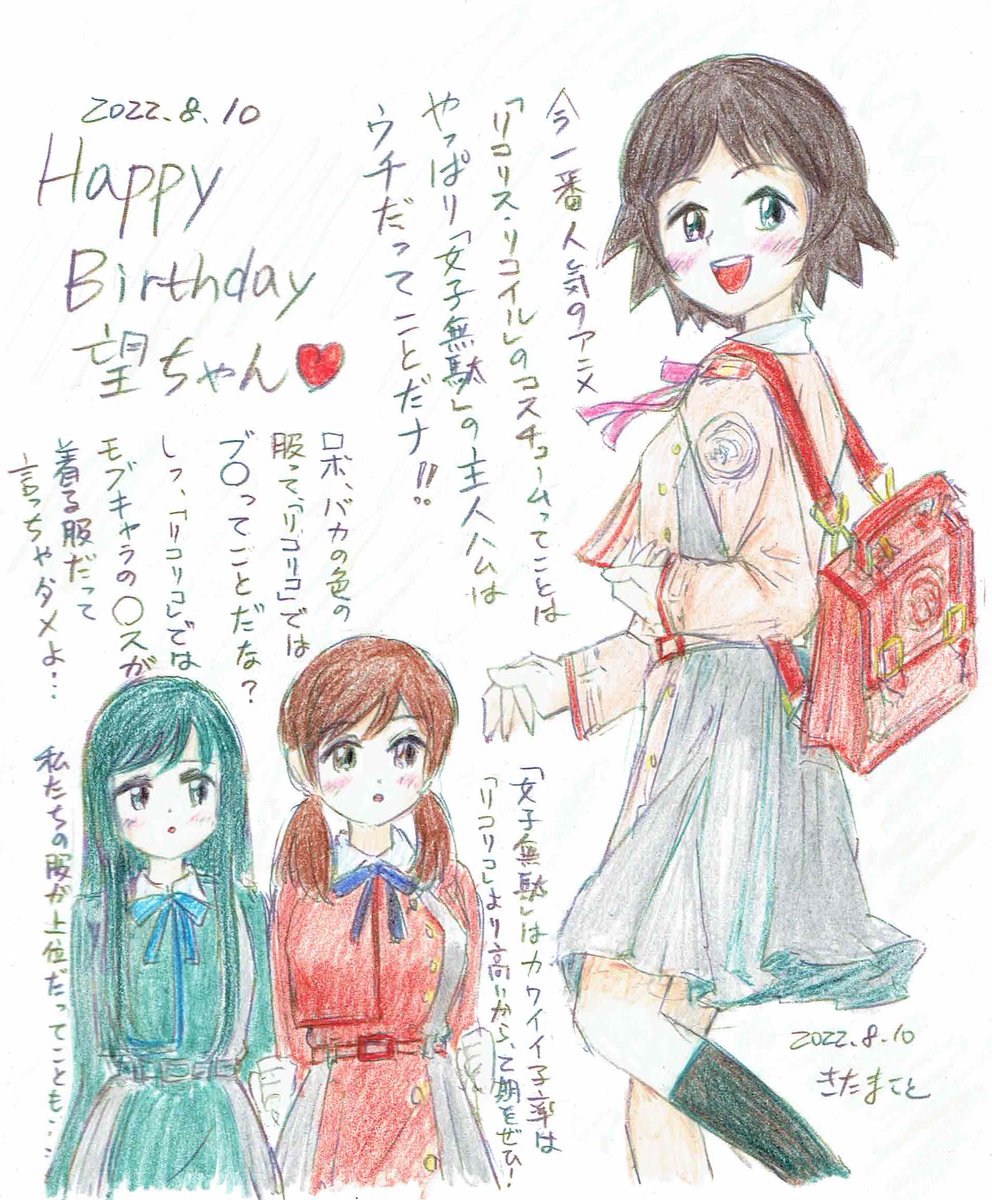 2022.8.10
Happy
Birthday
望ちゃん♥
今一番人気のアニメ
「リコリス・リコイル」のコスチュームってことは
やっぱり「女子無駄」の主人公は
ウチだってことだナ!!
ロボ、バカの色の
服って、「リコリコ」では
ブ〇ってことだな?
しっ、「リコリコ」では
モブキャラの〇スが
着る服だって
言っちゃダメよ!…
私たちの服が上位だってことも……
「女子無駄」はカワイイ子率は
「リコリコ」より高いから、2期をぜひ!
2022.8.10
きたまこと